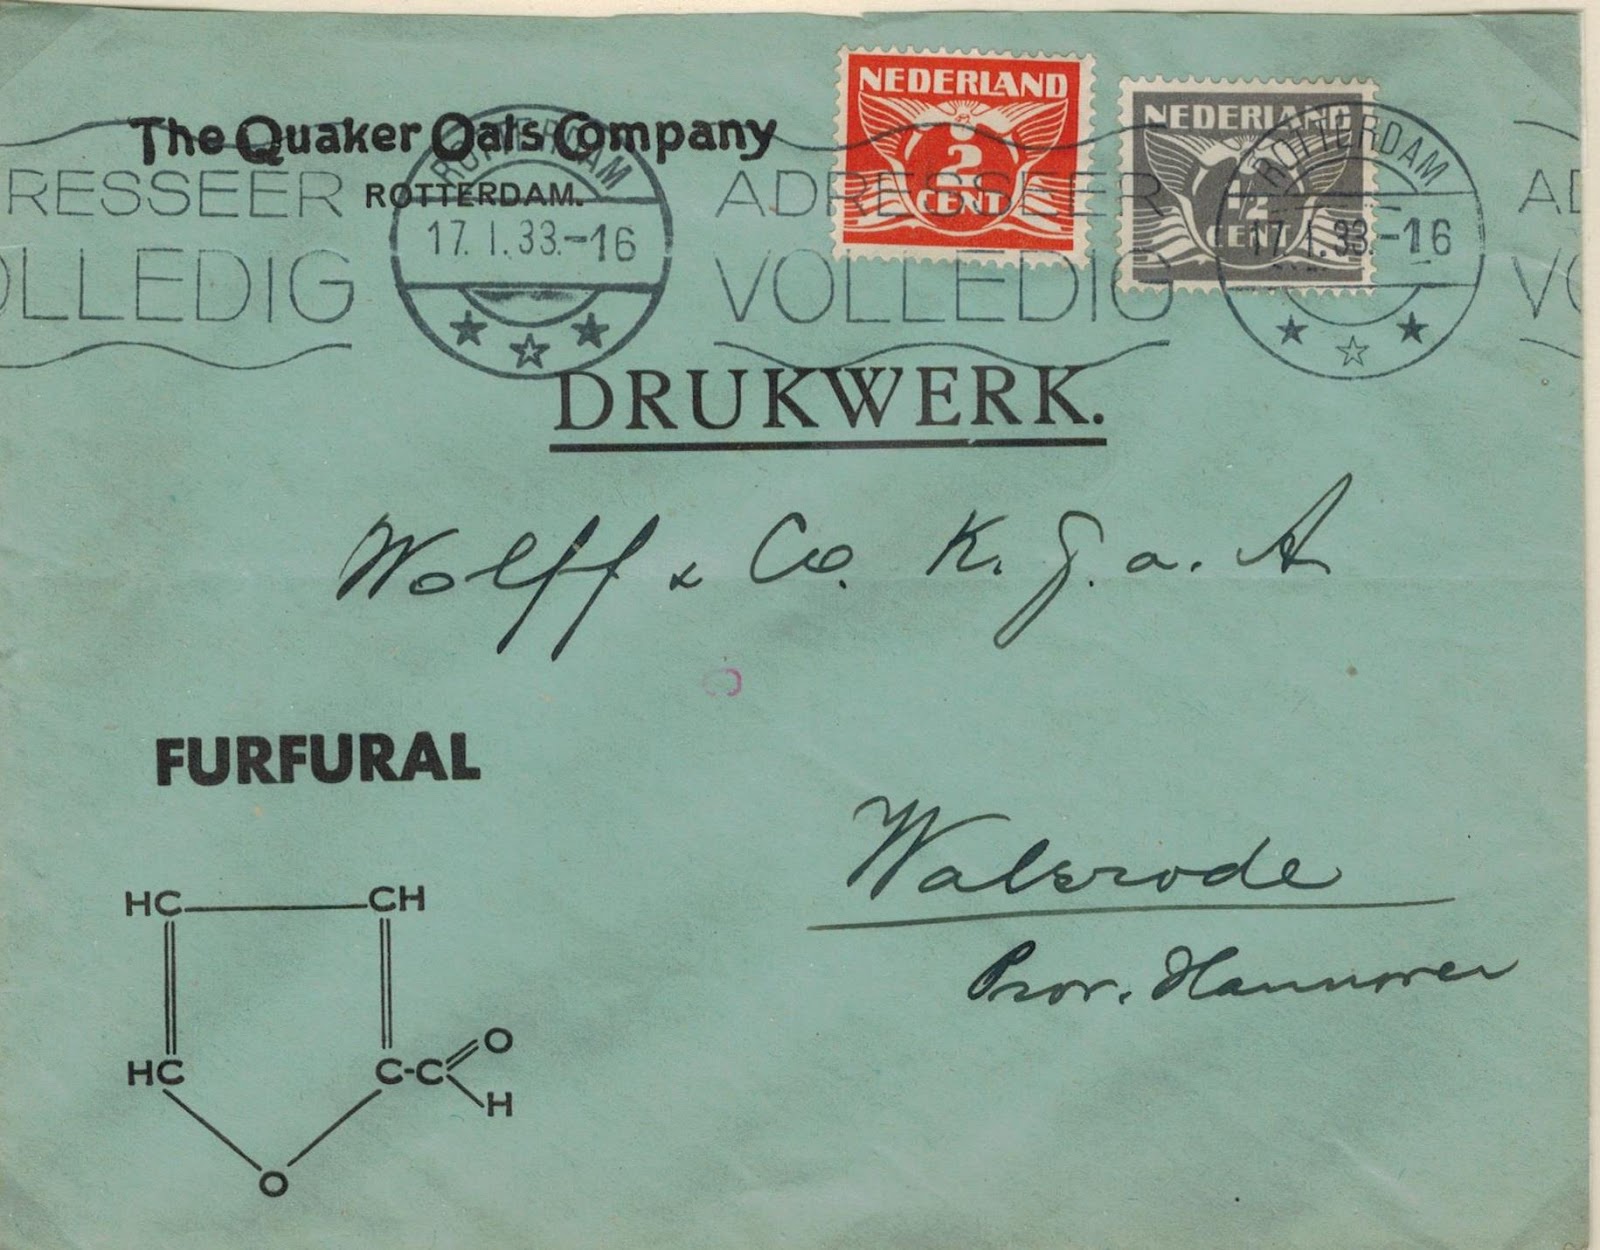 The Quaker Oats Company
ROTTERDAM.
NEDERLAND
2
CENT
NEDERLAND
1/2
CENT
ROTTERDAM
17.1.33.-16
ROTTERDAM
17.1.33.-16
RESSEER
OLLEDIG
ADRESSEER
VOLLEDIG
AD
VO
DRUKWERK.
Wolff & Co. K. G. a. A
FURFURAL
Walsrode
Prov. Hannover
HC CH
HC C-C O
H
O